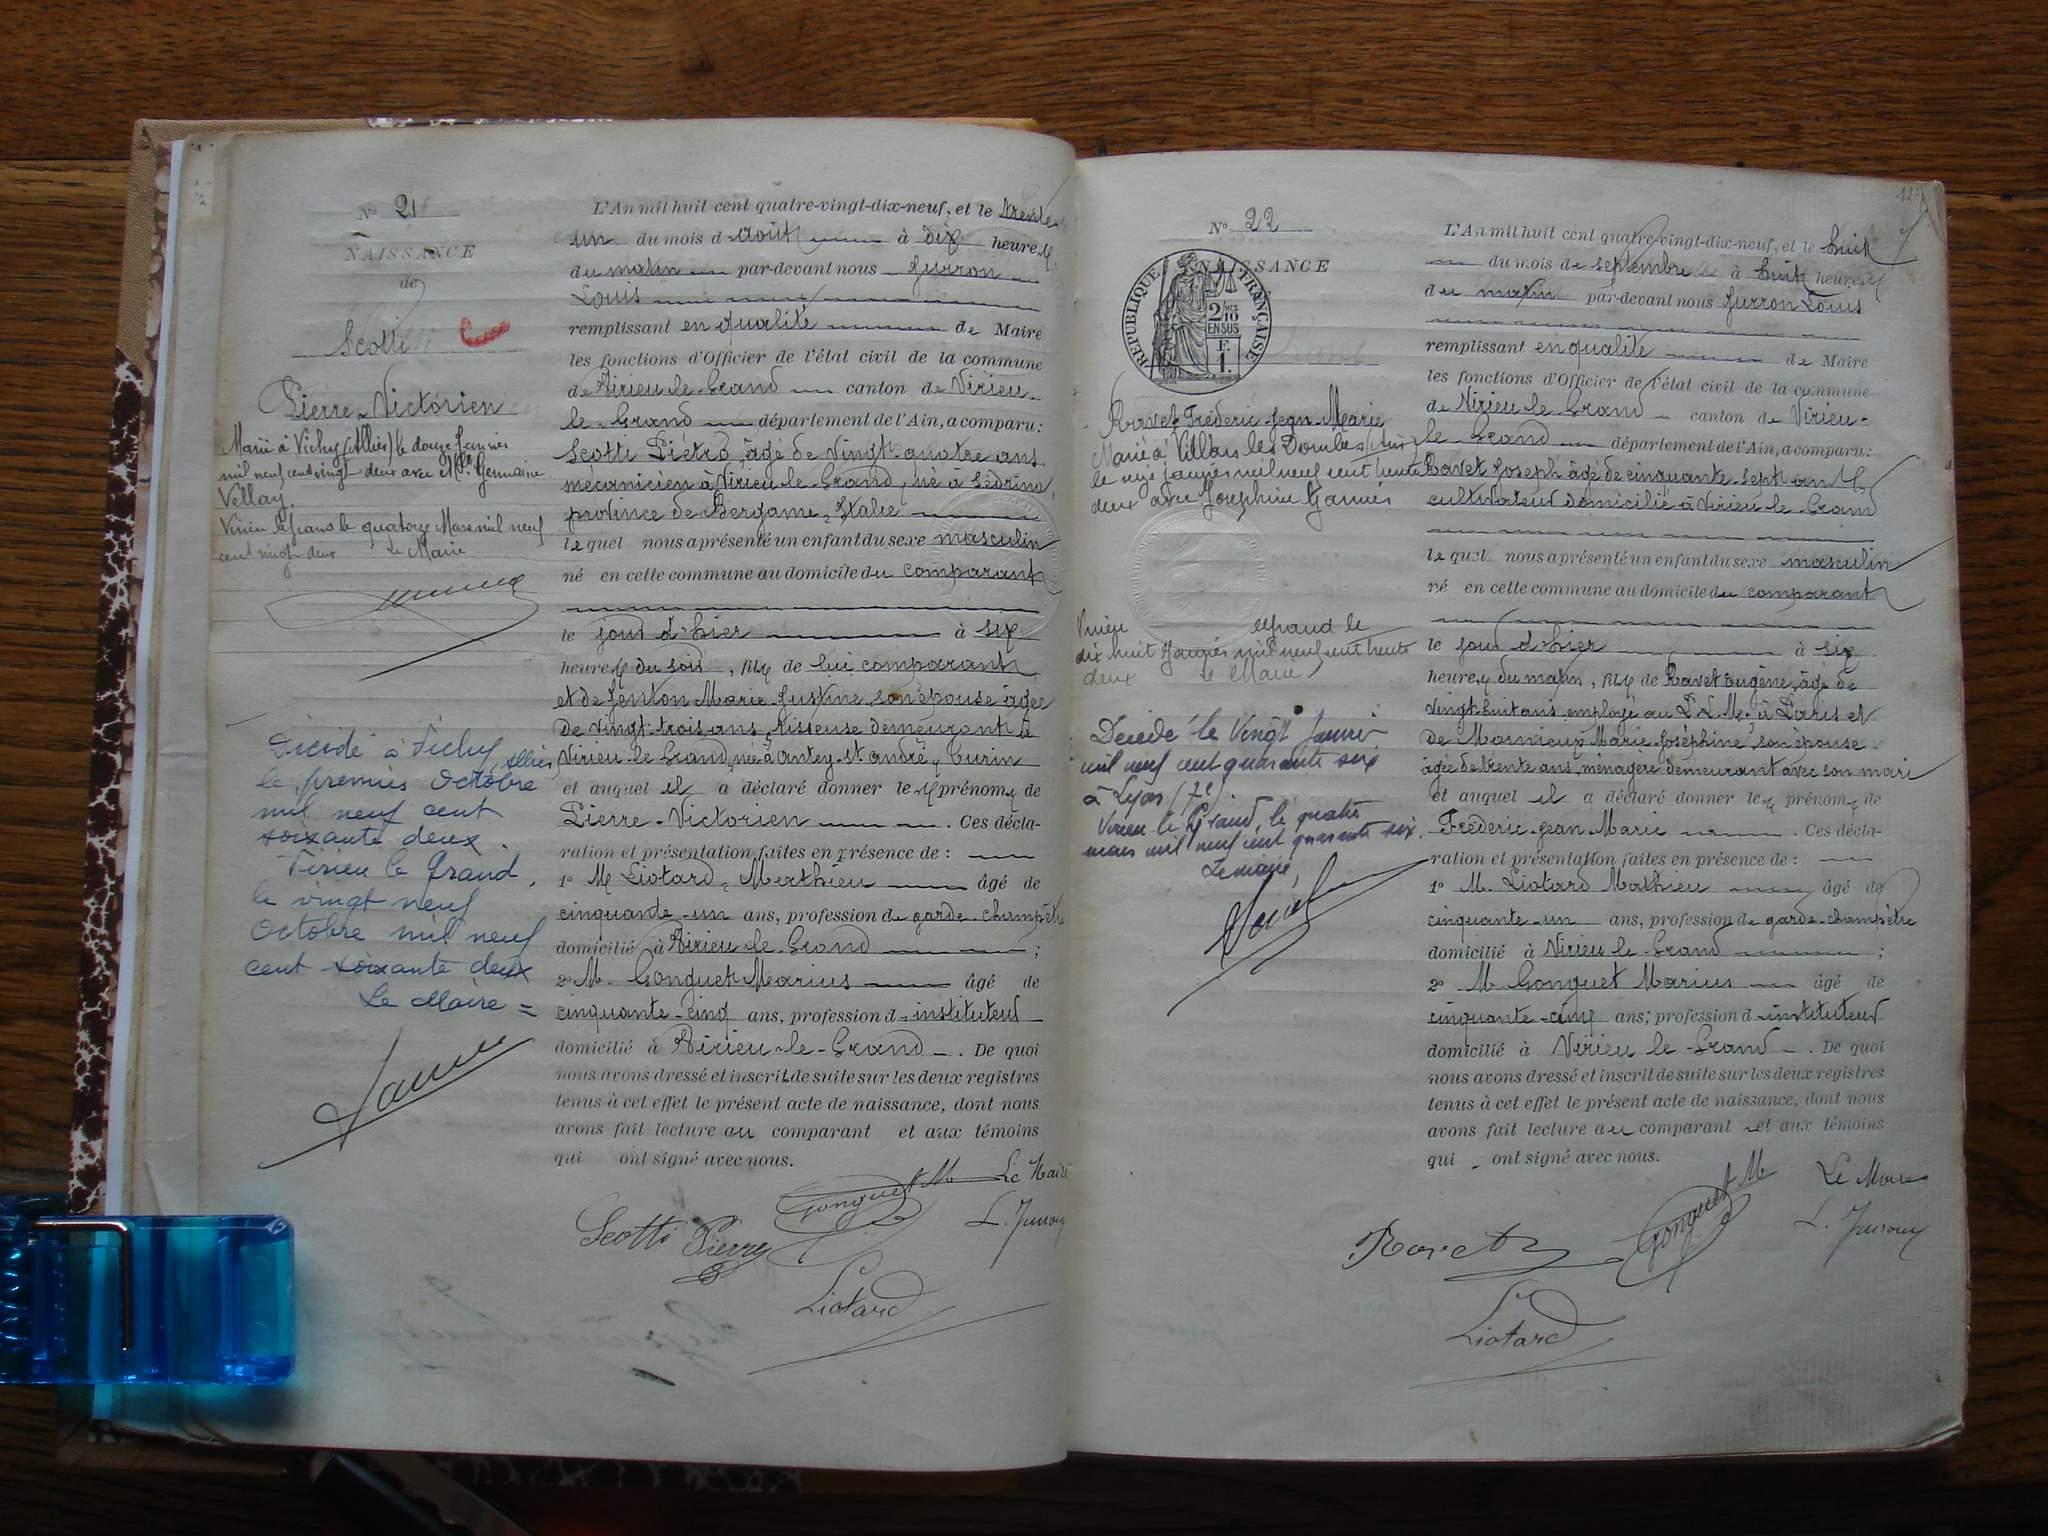 N° 21
NAISSANCE
de
Scotti
Pierre-Victorien
Marié à Vichy (Allier) le douze Janvier
mil neuf cent vingt deux avec Mlle Germaine
Vellay
Virieu le Grand le quatorze Mars mil neuf
cent vingt deux Le Maire
Décédé à Vichy, Allier,
le premier Octobre
mil neuf cent
soixante deux.
Virieu le Grand,
le vingt neuf
Octobre mil neuf
cent soixante deux
Le Maire =
L'An mil huit cent quatre-vingt-dix-neuf, et le trente
un du mois d août à dix heures
du matin par-devant nous Jurron
Louis
remplissant en qualité de Maire
les fonctions d'Officier de l'état civil de la commune
de Virieu-le-Grand canton de Virieu-
le-Grand département de l'Ain, a comparu:
Scotti Piétro, âgé de vingt-quatre ans
mécanicien à Virieu-le-Grand, né à Sédrina,
province de Bergame, Italie
le quel nous a présenté un enfant du sexe masculin
né en cette commune au domicile du comparant
le jour d'hier à six
heures du soir, fils de lui comparant
et de Marie-Justine son épouse âgée
de vingt-trois ans, tisseuse demeurant à
Virieu-le-Grand, née à Antey-St André, Turin
et auquel il a déclaré donner les prénoms de
Pierre-Victorien. Ces décla-
ration et présentation faites en présence de :
1° M Liotard, Mathieu âgé de
cinquante-un ans, profession de garde-champêtre
domicilié à Virieu-le-Grand ;
2° M. Gonguet Marius âgé de
cinquante-cinq ans, profession d'instituteur
domicilié à Virieu-le-Grand. De quoi
nous avons dressé et inscrit de suite sur les deux registres
tenus à cet effet le présent acte de naissance, dont nous
avons fait lecture au comparant et aux témoins
qui ont signé avec nous.
Gonguet M Le Maire
Scotti Pierre L. Jurron
Liotard
N° 22
NAISSANCE
REPUBLIQUE FRANÇAISE
2/10 EN SUS
F. 1.
Ravet Frédéric-Jean-Marie
Marié à Villars les Dombes (Ain)
le seize janvier mil neuf cent trente
deux avec Joséphine Janier
Virieu le grand le
dix huit Janvier mil neuf cent trente
deux Le Maire
Décédé le Vingt Janvier
mil neuf cent quarante six
à Lyon (7e).
Virieu le Grand, le quatre
mars mil neuf cent quarante six.
Le maire,
L'An mil huit cent quatre-vingt-dix-neuf, et le huit
du mois de septembre à huit heures
du matin par-devant nous Jurron Louis
remplissant en qualité de Maire
les fonctions d'Officier de l'état civil de la commune
de Virieu-le-Grand canton de Virieu-
le-Grand département de l'Ain, a comparu:
Ravet Joseph âgé de cinquante-sept ans
cultivateur domicilié à Virieu-le-Grand
le quel nous a présenté un enfant du sexe masculin
né en cette commune au domicile du comparant
le jour d'hier à six
heures du matin, fils de Ravet Eugène, âgé de
vingt-huit ans, employé au P.L.M. à Paris et
de Marnieux Marie-Joséphine son épouse
âgée de trente ans, ménagère demeurant avec son mari
et auquel il a déclaré donner les prénoms de
Frédéric-Jean Marie. Ces décla-
ration et présentation faites en présence de :
1° M. Liotard Mathieu âgé de
cinquante-un ans, profession de garde-champêtre
domicilié à Virieu-le-Grand ;
2° M Gonguet Marius âgé de
cinquante-cinq ans, profession d'instituteur
domicilié à Virieu le-Grand. De quoi
nous avons dressé et inscrit de suite sur les deux registres
tenus à cet effet le présent acte de naissance, dont nous
avons fait lecture au comparant et aux témoins
qui ont signé avec nous.
Gonguet M Le Maire
Ravet L. Jurron
Liotard